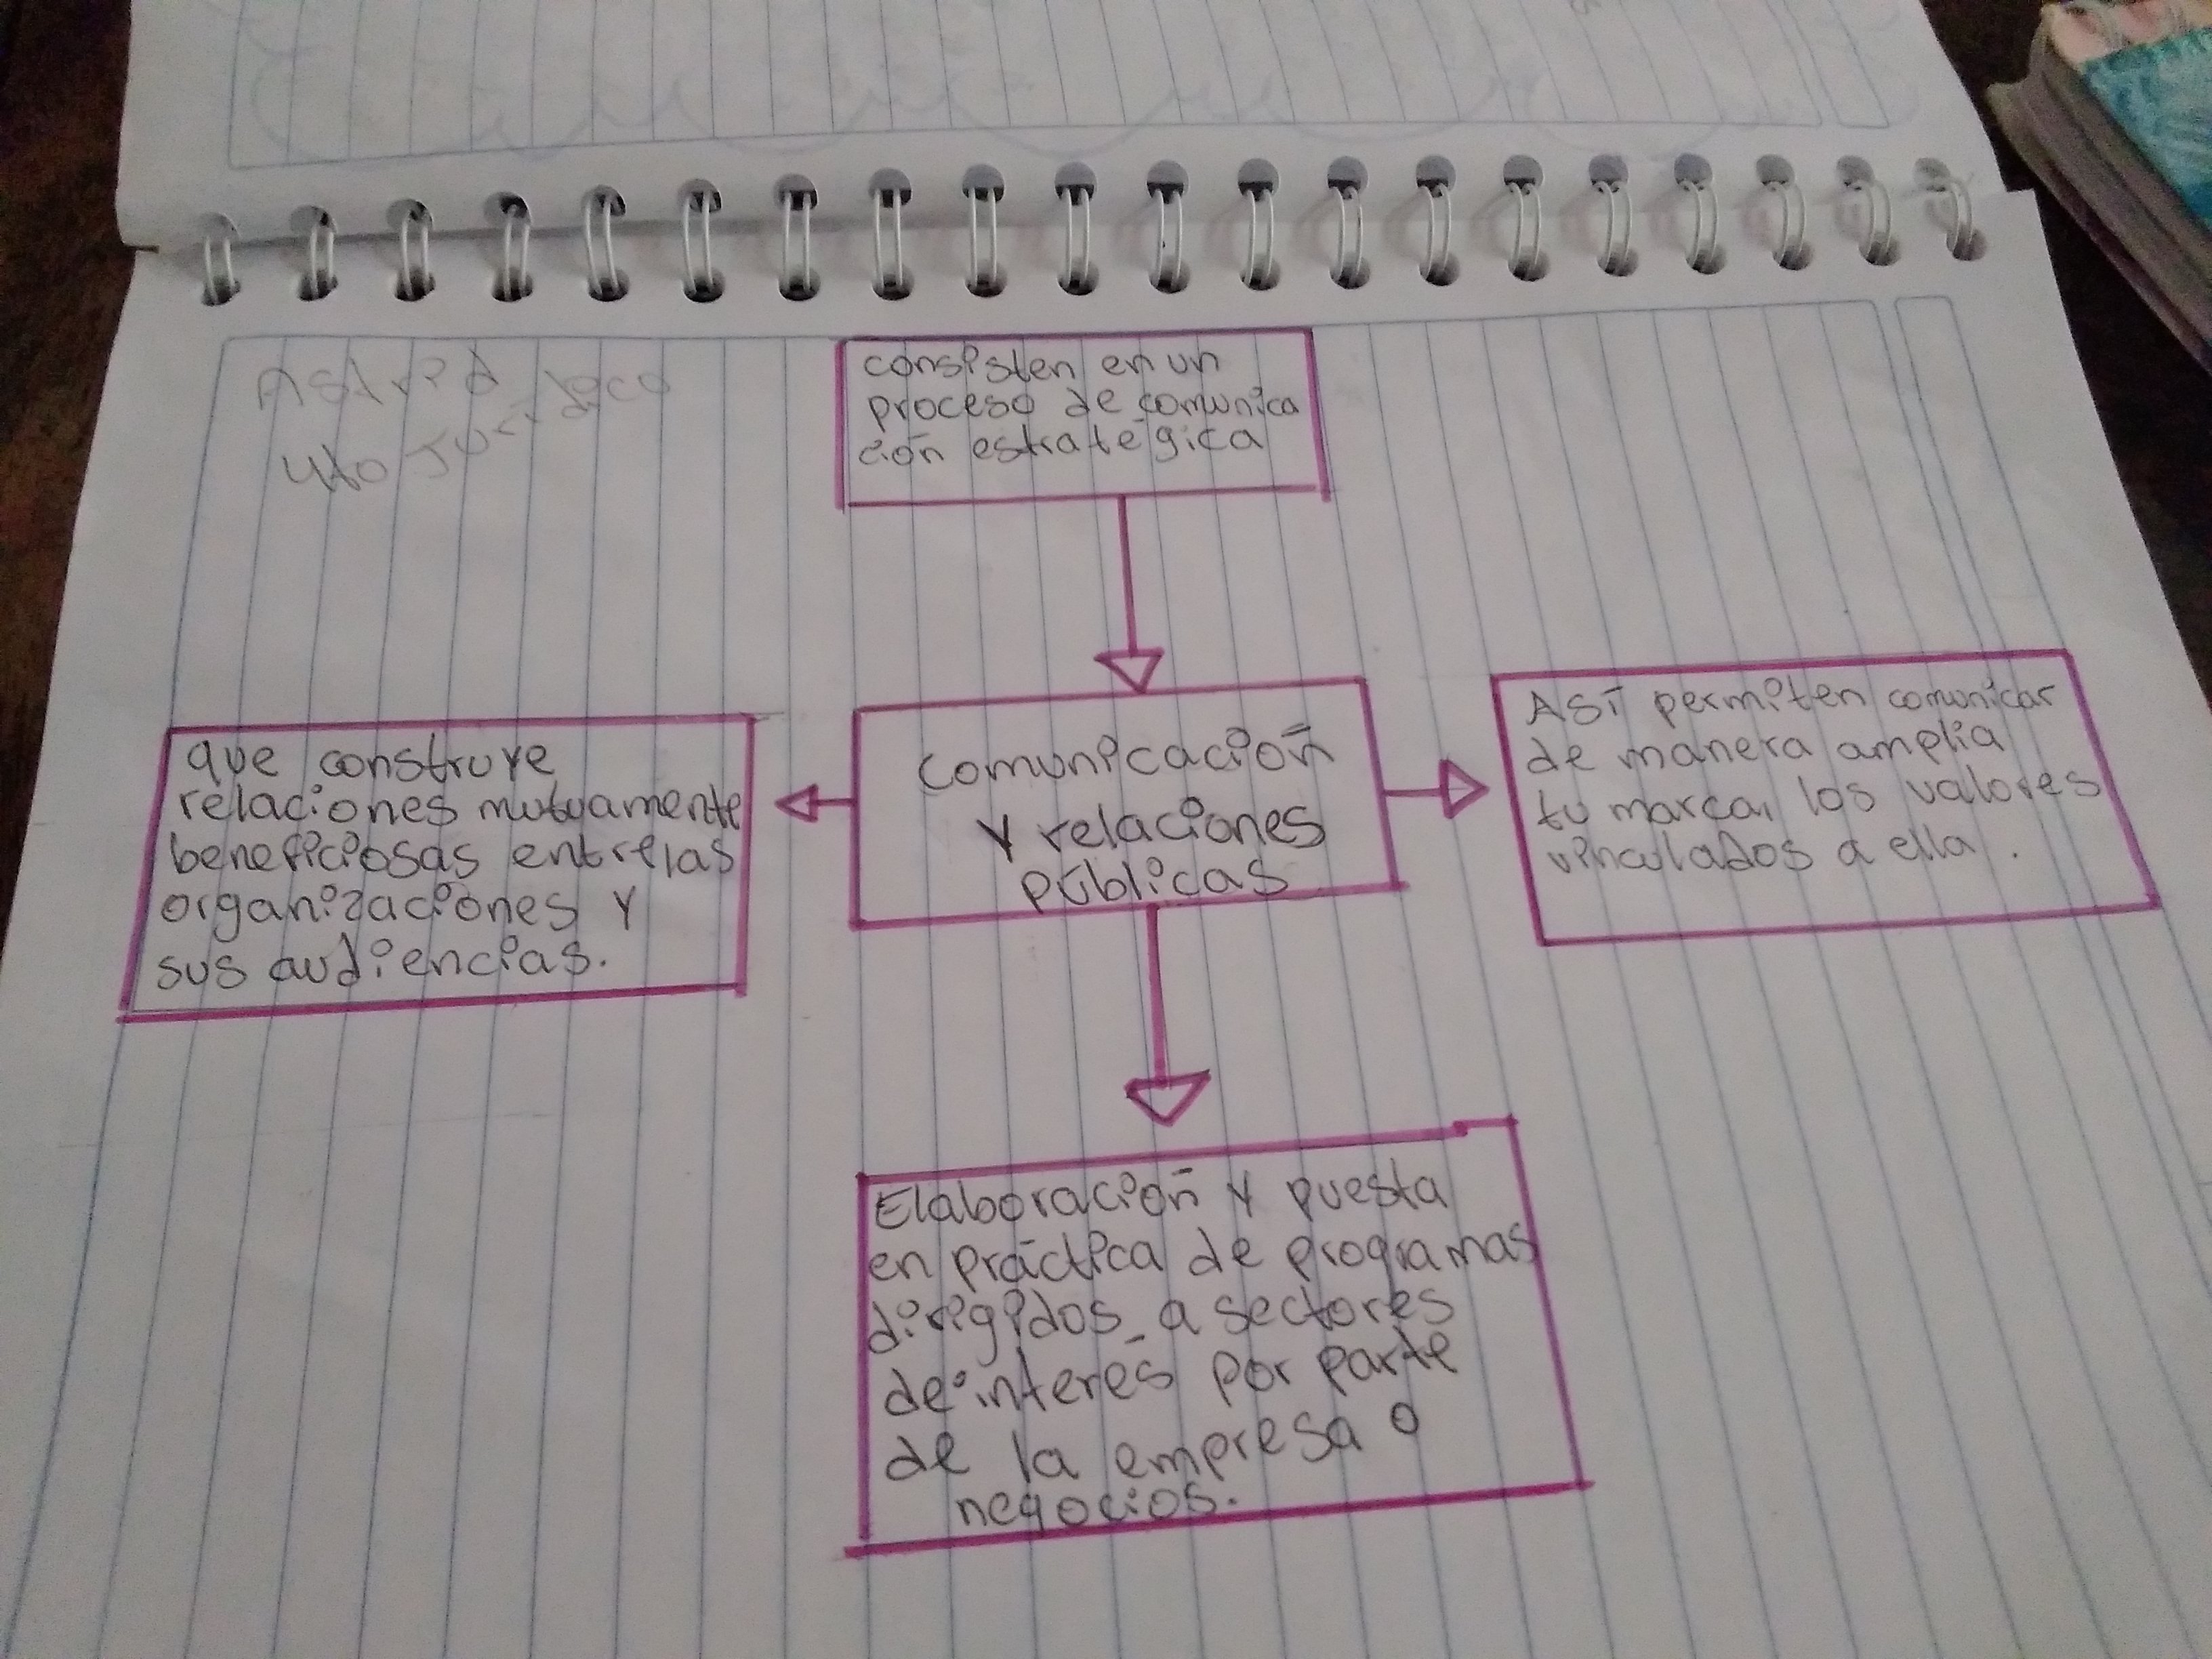 Astrid
4to Juridico
consisten en un
proceso de comunica
ción estratégica
que construye
relaciones mutuamente
beneficiosas entre las
organizaciones y
sus audiencias.
comunicación
y relaciones
públicas
Así permiten comunicar
de manera amplia
tu marca, los valores
vinculados a ella.
Elaboración y puesta
en práctica de programas
dirigidos a sectores
de interés por parte
de la empresa o
negocios.